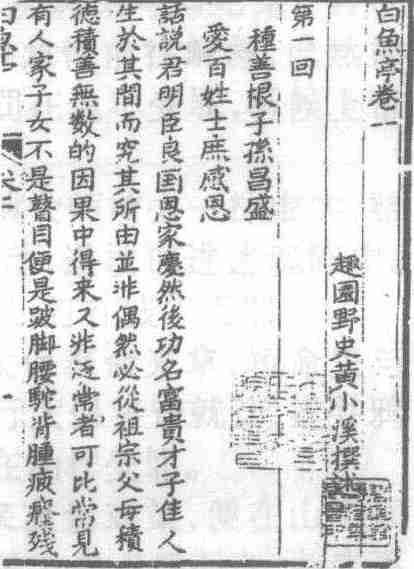 白魚亭卷一
趣園野史黄小溪撰
第一回
種善根子孫昌盛
愛百姓士庶感恩
話説君明臣良国恩家慶然後功名富貴才子佳人
生於其間而究其所由並非偶然必從祖宗父母積
德積善無数的因果中得来又非泛常者可比常見
有人家子女不是瞽目便是跛脚腰駝背腫痰殘